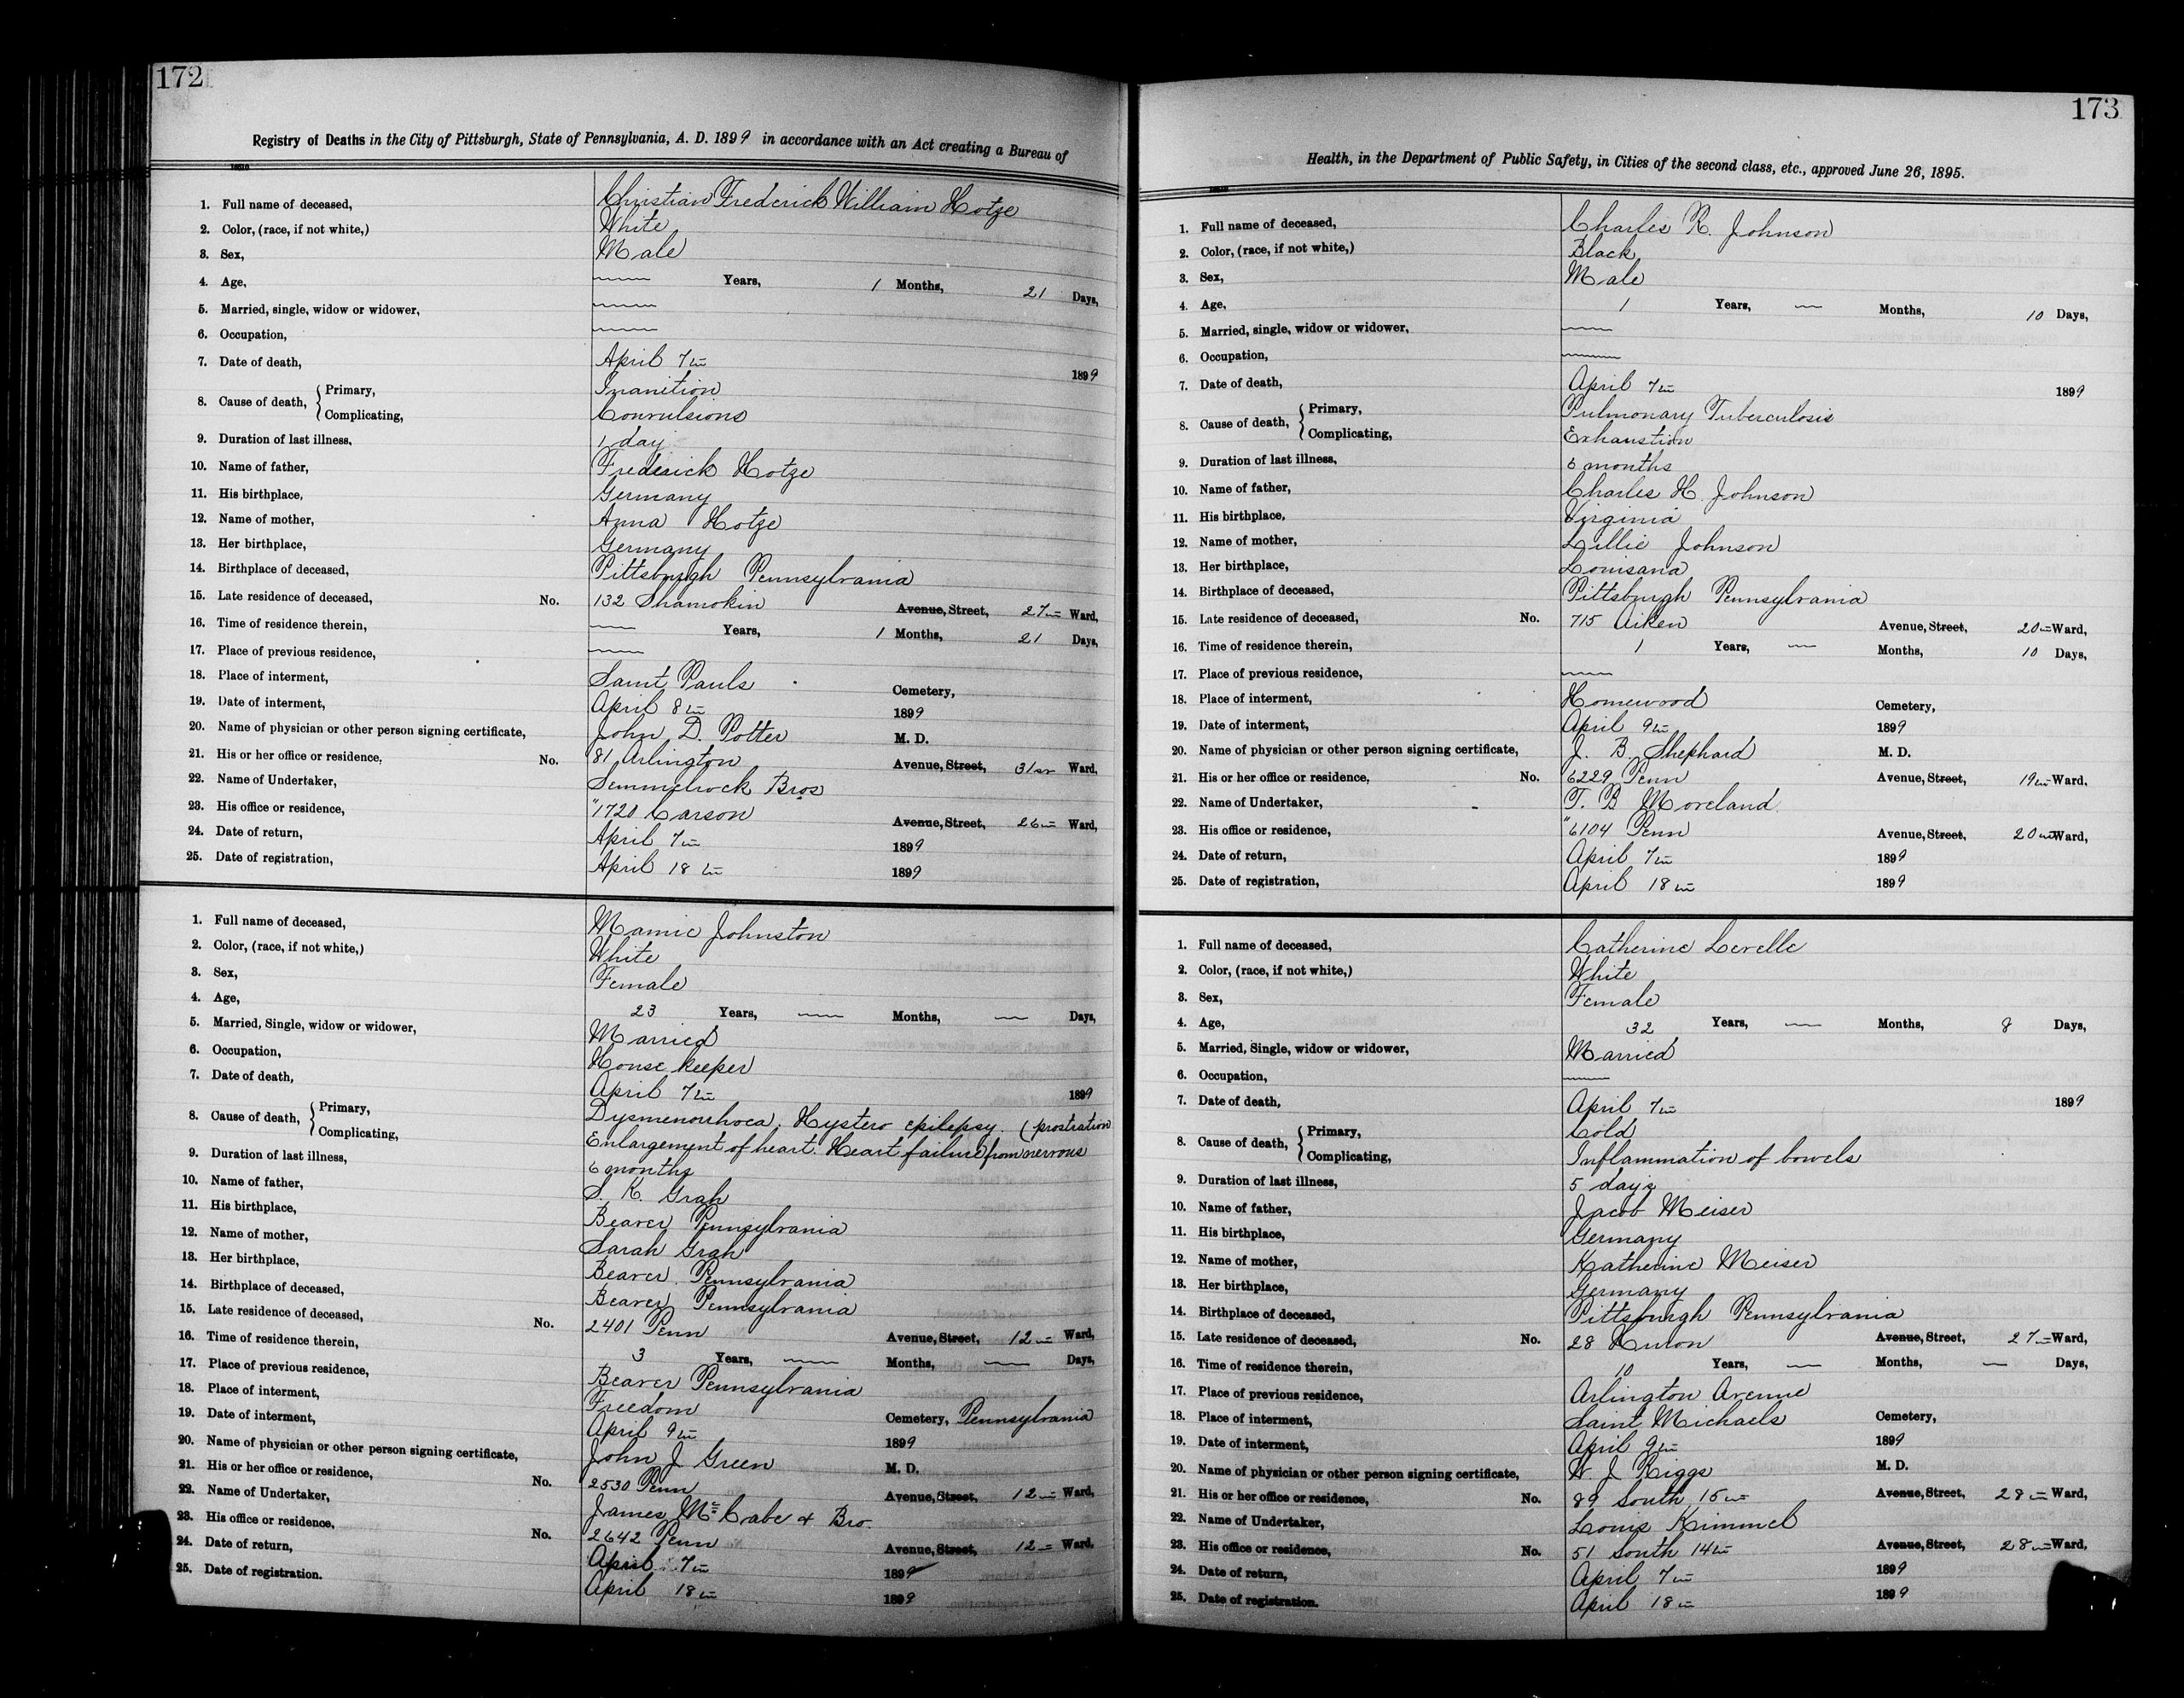 172
Registry of Deaths in the City of Pittsburgh, State of Pennsylvania, A. D. 1899 in accordance with an Act creating a Bureau of
1. Full name of deceased, Christian Frederick William Hotze
2. Color, (race, if not white,) White
3. Sex, Male
4. Age, Years, 1 Months, 21 Days,
5. Married, single, widow or widower,
6. Occupation,
7. Date of death, April 7th 1899
8. Cause of death, Primary, Inanition
Complicating, Convulsions
9. Duration of last illness, 1 day
10. Name of father, Frederick Hotze
11. His birthplace, Germany
12. Name of mother, Anna Hotze
13. Her birthplace, Germany
14. Birthplace of deceased, Pittsburgh Pennsylvania
15. Late residence of deceased, No. 132 Shamokin Avenue, Street, 27th Ward,
16. Time of residence therein, Years, 1 Months, 21 Days,
17. Place of previous residence,
18. Place of interment, Saint Pauls Cemetery,
19. Date of interment, April 8th 1899
20. Name of physician or other person signing certificate, John D. Potter M. D.
21. His or her office or residence, No. 81 Arlington Avenue, Street, 31st Ward,
22. Name of Undertaker, Semmelrock Bros
23. His office or residence, "1720 Carson Avenue, Street, 26th Ward,
24. Date of return, April 7th 1899
25. Date of registration, April 18th 1899
1. Full name of deceased, Mamie Johnston
2. Color, (race, if not white,) White
3. Sex, Female
4. Age, 23 Years, Months, Days,
5. Married, Single, widow or widower, Married
6. Occupation, House keeper
7. Date of death, April 7th 1899
8. Cause of death, Primary, Dysmenorrhoea, Hystero epilepsy. (prostration
Complicating, Enlargement of heart. Heart failure from nervous
9. Duration of last illness, 6 months
10. Name of father, S. K. Grah
11. His birthplace, Beaver Pennsylvania
12. Name of mother, Sarah Grah
13. Her birthplace, Beaver Pennsylvania
14. Birthplace of deceased, Beaver Pennsylvania
15. Late residence of deceased, No. 2401 Penn Avenue, Street, 12th Ward,
16. Time of residence therein, 3 Years, Months, Days,
17. Place of previous residence, Beaver Pennsylvania
18. Place of interment, Freedom Cemetery, Pennsylvania
19. Date of interment, April 9th 1899
20. Name of physician or other person signing certificate, John J Green M. D.
21. His or her office or residence, No. 2530 Penn Avenue, Street, 12th Ward,
22. Name of Undertaker, James McCabe & Bro.
23. His office or residence, No. 2642 Penn Avenue, Street, 12th Ward.
24. Date of return, April 7th 1899
25. Date of registration. April 18th 1899
173
Health, in the Department of Public Safety, in Cities of the second class, etc., approved June 26, 1895.
1. Full name of deceased, Charles R. Johnson
2. Color, (race, if not white,) Black
3. Sex, Male
4. Age, 1 Years, Months, 10 Days,
5. Married, single, widow or widower,
6. Occupation,
7. Date of death, April 7th 1899
8. Cause of death, Primary, Pulmonary Tuberculosis
Complicating, Exhaustion
9. Duration of last illness, 6 months
10. Name of father, Charles H. Johnson
11. His birthplace, Virginia
12. Name of mother, Lillie Johnson
13. Her birthplace, Louisana
14. Birthplace of deceased, Pittsburgh Pennsylvania
15. Late residence of deceased, No. 715 Aiken Avenue, Street, 20th Ward,
16. Time of residence therein, 1 Years, Months, 10 Days,
17. Place of previous residence,
18. Place of interment, Homewood Cemetery,
19. Date of interment, April 9th 1899
20. Name of physician or other person signing certificate, J. B. Shephard M. D.
21. His or her office or residence, No. 6229 Penn Avenue, Street, 19th Ward,
22. Name of Undertaker, T. B Moreland
23. His office or residence, "6104 Penn Avenue, Street, 20th Ward,
24. Date of return, April 7th 1899
25. Date of registration, April 18th 1899
1. Full name of deceased, Catherine Levelle
2. Color, (race, if not white,) White
3. Sex, Female
4. Age, 32 Years, Months, 8 Days,
5. Married, Single, widow or widower, Married
6. Occupation,
7. Date of death, April 7th 1899
8. Cause of death, Primary, Cold
Complicating, Inflammation of bowels
9. Duration of last illness, 5 days
10. Name of father, Jacob Meiser
11. His birthplace, Germany
12. Name of mother, Katherine Meiser
13. Her birthplace, Germany
14. Birthplace of deceased, Pittsburgh Pennsylvania
15. Late residence of deceased, No. 28 Huron Avenue, Street, 27th Ward,
16. Time of residence therein, 10 Years, Months, Days,
17. Place of previous residence, Arlington Avenue
18. Place of interment, Saint Michaels Cemetery,
19. Date of interment, April 9th 1899
20. Name of physician or other person signing certificate, W. J Riggs M. D.
21. His or her office or residence, No. 89 South 15th Avenue, Street, 28th Ward,
22. Name of Undertaker, Louis Kimmel
23. His office or residence, No. 51 South 14th Avenue, Street, 28th Ward,
24. Date of return, April 7th 1899
25. Date of registration. April 18th 1899